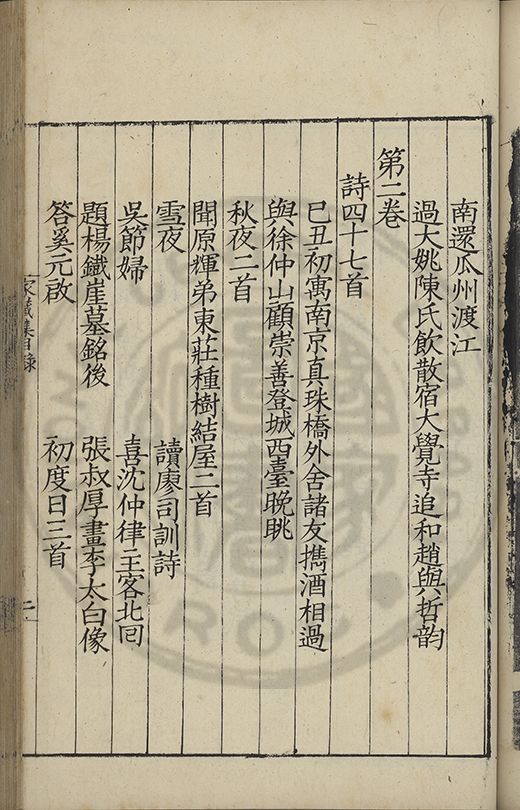 南還瓜州渡江
過大姚陳氏飲散宿大覺寺追和趙與哲韵
第二卷
詩四十七首
己丑初寓南京真珠橋外舍諸友攜酒相過
與徐仲山顧崇善登城西臺晚眺
秋夜二首
聞原輝弟東莊種樹結屋二首
雪夜　讀廖司訓詩
吳節婦　喜沈仲律主客北回
題楊鐵崖墓銘後　張叔厚畫李太白像
答奚元啟　初度日三首
家藏集目錄　二